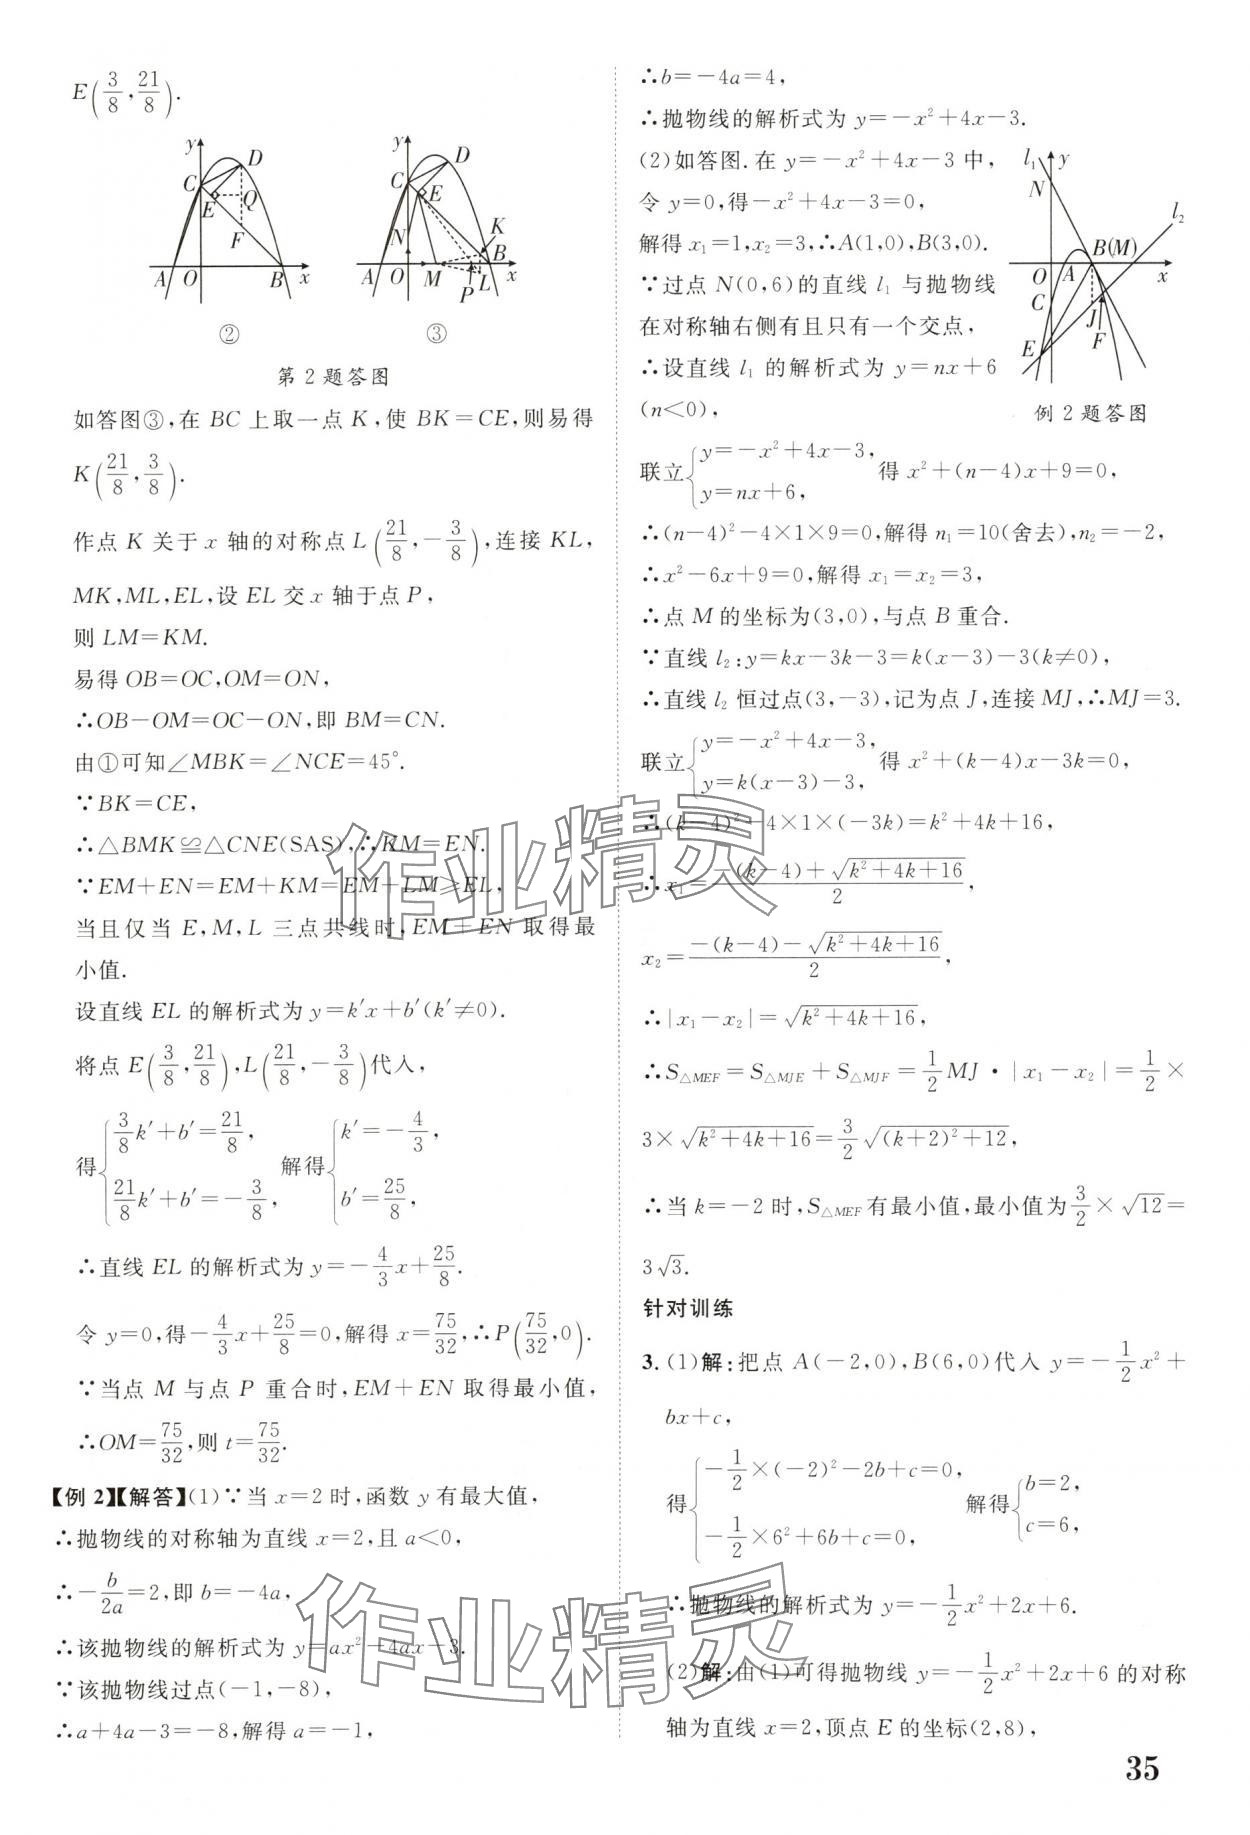 E(3/8,21/8).
y
D
C
E
Q
F
A
O
B
x
②
y
D
C
E
N
K
B
A
O
M
P
L
x
③
第2题答图
如答图③,在 BC 上取一点 K,使 BK=CE,则易得
K(21/8,3/8).
作点 K 关于 x 轴的对称点 L(21/8,-3/8),连接 KL,
MK,ML,EL,设 EL 交 x 轴于点 P,
则 LM=KM.
易得 OB=OC,OM=ON,
∴OB-OM=OC-ON,即 BM=CN.
由①可知∠MBK=∠NCE=45°.
∵BK=CE,
∴△BMK≌△CNE(SAS),∴KM=EN.
∵EM+EN=EM+KM=EM+LM≥EL,
当且仅当 E,M,L 三点共线时,EM+EN 取得最
小值.
设直线 EL 的解析式为 y=k′x+b′(k′≠0).
将点 E(3/8,21/8),L(21/8,-3/8)代入,
得{3/8k′+b′=21/8, 21/8k′+b′=-3/8, 解得{k′=-4/3, b′=25/8,
∴直线 EL 的解析式为 y=-4/3x+25/8.
令 y=0,得-4/3x+25/8=0,解得 x=75/32,∴P(75/32,0).
∵当点 M 与点 P 重合时,EM+EN 取得最小值,
∴OM=75/32,则 t=75/32.
【例2】【解答】(1)∵当 x=2 时,函数 y 有最大值,
∴抛物线的对称轴为直线 x=2,且 a<0,
∴-b/2a=2,即 b=-4a,
∴该抛物线的解析式为 y=ax²-4ax-3.
∵该抛物线过点(-1,-8),
∴a+4a-3=-8,解得 a=-1,
∴b=-4a=4,
∴抛物线的解析式为 y=-x²+4x-3.
(2)如答图.在 y=-x²+4x-3 中,
令 y=0,得-x²+4x-3=0,
解得 x₁=1,x₂=3,∴A(1,0),B(3,0).
∵过点 N(0,6)的直线 l₁ 与抛物线
在对称轴右侧有且只有一个交点,
∴设直线 l₁ 的解析式为 y=nx+6
(n<0),
l₁
y
N
l₂
B(M)
O
A
x
C
J
E
F
例2题答图
联立{y=-x²+4x-3, y=nx+6, 得 x²+(n-4)x+9=0,
∴(n-4)²-4×1×9=0,解得 n₁=10(舍去),n₂=-2,
∴x²-6x+9=0,解得 x₁=x₂=3,
∴点 M 的坐标为(3,0),与点 B 重合.
∵直线 l₂:y=kx-3k-3=k(x-3)-3(k≠0),
∴直线 l₂ 恒过点(3,-3),记为点 J,连接 MJ,∴MJ=3.
联立{y=-x²+4x-3, y=k(x-3)-3, 得 x²+(k-4)x-3k=0,
∴(k-4)²-4×1×(-3k)=k²+4k+16,
∴x₁=(-(k-4)+√(k²+4k+16))/2,
x₂=(-(k-4)-√(k²+4k+16))/2,
∴|x₁-x₂|=√(k²+4k+16),
∴S△MEF=S△MJE+S△MJF=1/2MJ·|x₁-x₂|=1/2×
3×√(k²+4k+16)=3/2√((k+2)²+12),
∴当 k=-2 时,S△MEF有最小值,最小值为3/2×√12=
3√3.
针对训练
3.(1)解:把点 A(-2,0),B(6,0)代入 y=-1/2x²+
bx+c,
得{-1/2×(-2)²-2b+c=0, -1/2×6²+6b+c=0, 解得{b=2, c=6,
∴抛物线的解析式为 y=-1/2x²+2x+6.
(2)解:由(1)可得抛物线 y=-1/2x²+2x+6 的对称
轴为直线 x=2,顶点 E 的坐标(2,8),
作业精灵
作业精灵
35